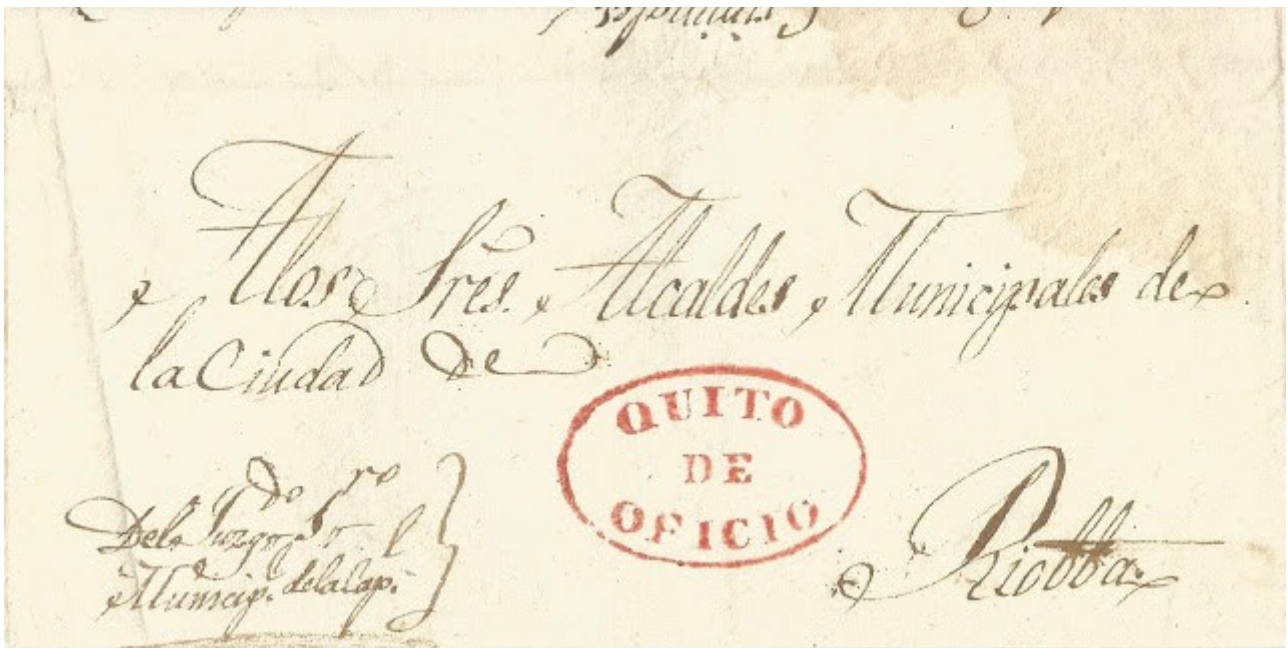 A los Sres. Alcaldes Municipales de
la Ciudad de
QUITO
DE
OFICIO
Riobba.
Del Juzgdo
Municip. de la Cap.l